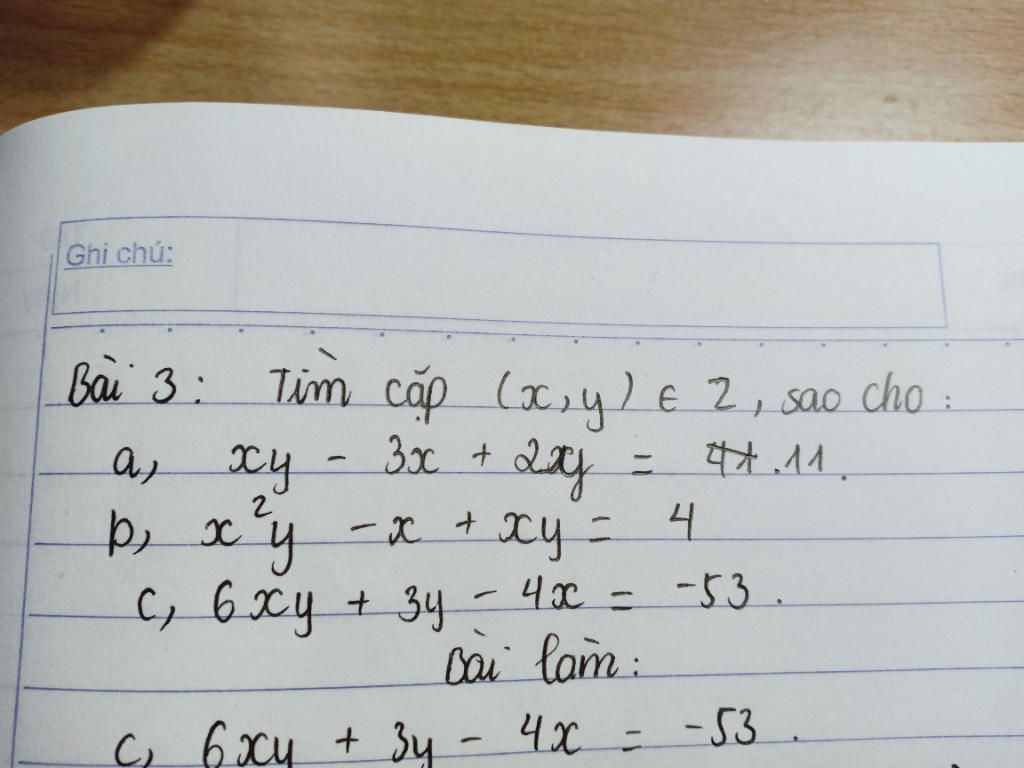 Ghi chú:
Bài 3: Tìm cặp (x,y) ∈ Z, sao cho:
a, xy - 3x + 2xy = .11.
b, x²y - x + xy = 4
c, 6xy + 3y - 4x = -53.
Bài làm:
c, 6xy + 3y - 4x = -53.